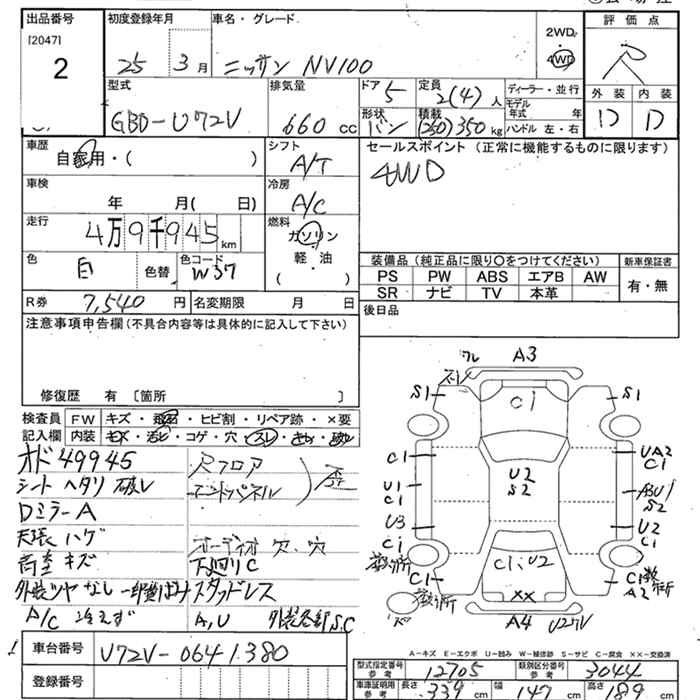 出品番号 初度登録年月 車名・グレード 評価点
[2047]
2
25 3月 ニッサン NV100
2WD
4WD
R
型式 排気量 ドア 5 定員 2(4)人 ディーラー・並行 外装 内装
GBD-U72V 660 cc 形状 バン 積載 (250)350 kg モデル年式 年 ハンドル 左・右 D D
車歴 自家用・( ) シフト A/T セールスポイント(正常に機能するものに限ります)
4WD
車検 年 月( 日) 冷房 A/C
走行 4万9千945km 燃料 ガソリン 軽・油 ( ・ )
色 白 色替 色コード W37
装備品(純正品に限り○をつけてください) 新車保証書
PS PW ABS エアB AW 有・無
SR ナビ TV 本革
R券 7,540円 名変期限 月 日
後日品
注意事項申告欄(不具合内容等は具体的に記入して下さい)
修復歴 有 〔箇所 〕
検査員記入欄 FW キズ・飛石・ヒビ割・リペア跡・×要
内装 キズ・汚レ・コゲ・穴・スレ・
オド49945 尺フロア
シート ヘタリ 破レ エンドパネル
Dミラー A
天張 ハゲ オーディオ 穴、穴
荷室 キズ 下廻リC
外装ツヤなし スタッドレス
A/C 冷えず A,U 外装各部S.C
ワレ A3
ズレ
S1 C1 S1
C1 UA2
C1
U1
C1
U2
S2
A3U1
S2
U3
C1
U2
C1
C1、U2
C1
C1
A2
××
A4 U2ワレ
A-キズ E-エクボ U-凹み W-補修跡 S-サビ C-腐食 ××-交換済
車台番号 U72V-0641380
登録番号
型式指定番号 参考 12705 類別区分番号 参考 3044
車庫証明用 参考 長さ 339 cm 幅 147 cm 高さ 189 cm